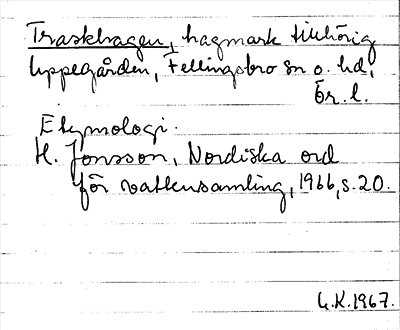 Traskhagen, hagmark tillhörig
Uppegården, Fellingsbro sn o. hd,
Ör. l.
Etymologi.
H. Jonsson, Nordiska ord
för vattensamling, 1966, s. 20.
G.K. 1967.